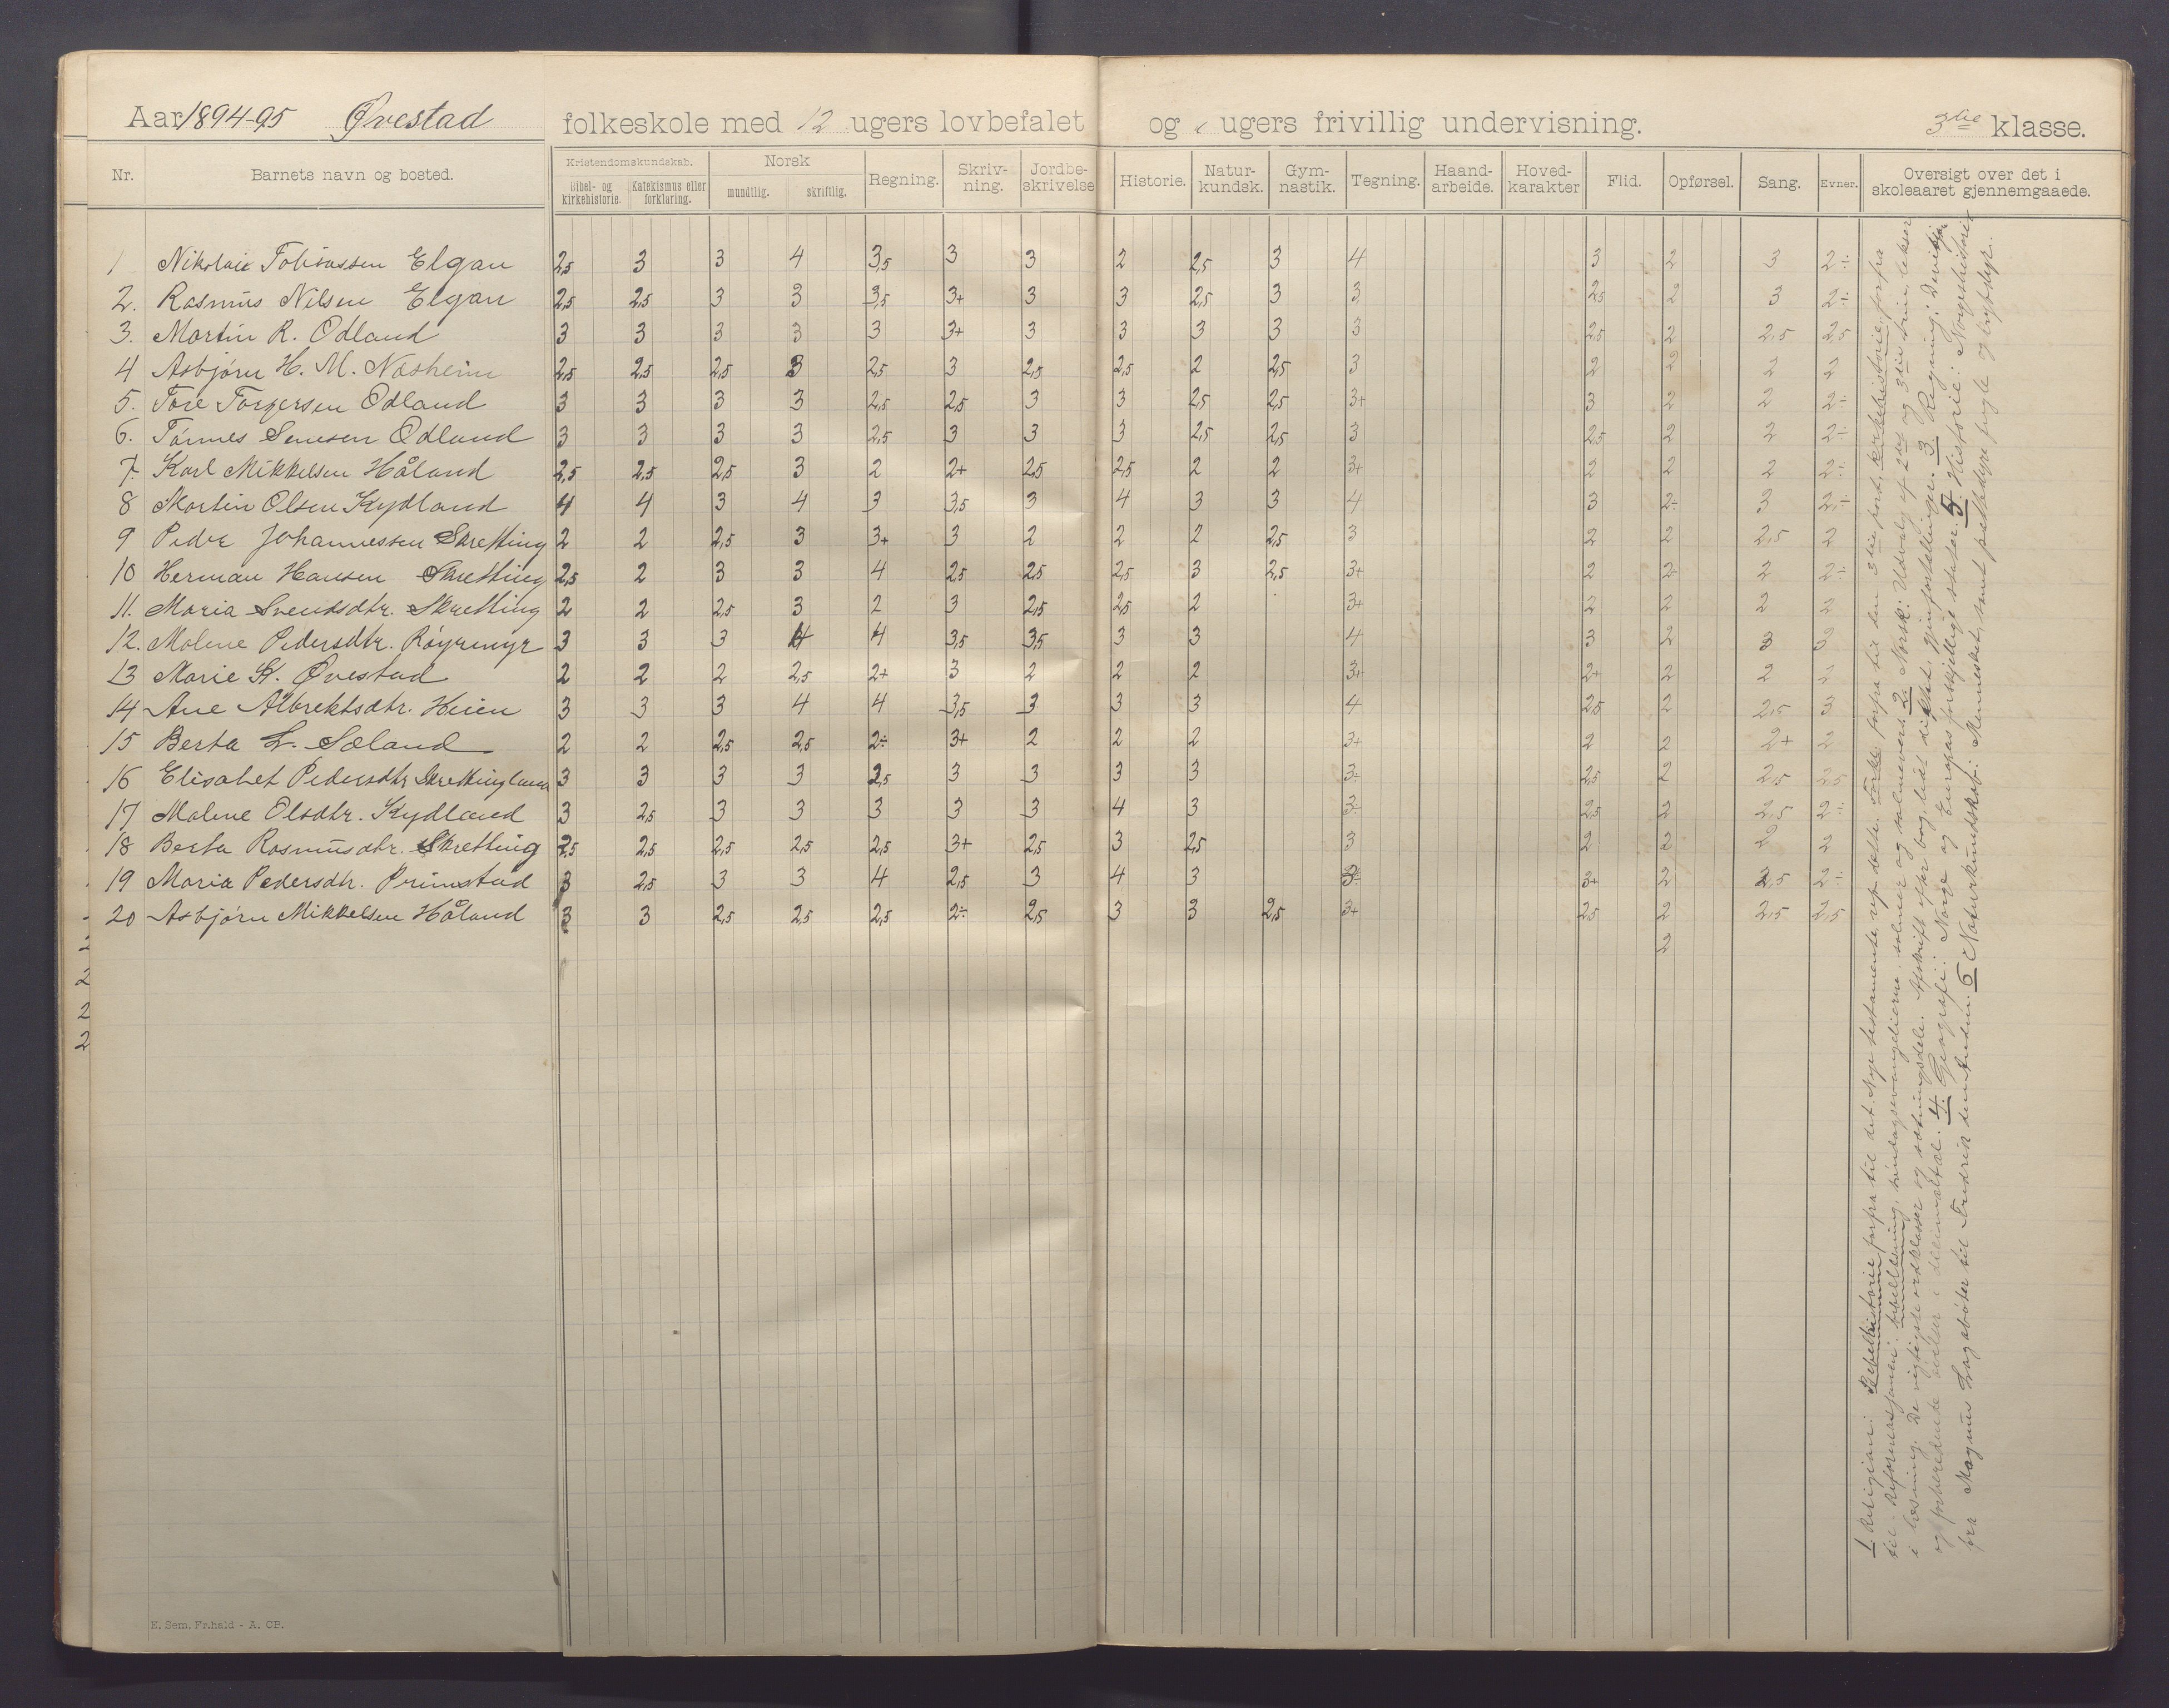 Aar 1894-95 Øvestad folkeskole med 12 ugers lovbefalet og ugers frivillig undervisning. 3die klasse.
Nr. Barnets navn og bosted. Kristendomskundskab. Norsk Regning. Skrivning. Jordbeskrivelse Historie. Naturkundsk. Gymnastik. Tegning. Haandarbeide. Hovedkarakter Flid. Opførsel. Sang. Evner. Oversigt over det i skoleaaret gjennemgaaede.
Bibel- og kirkehistorie. Katekismus eller forklaring. mundtlig. skriftlig.
1 Nikolai Tobiassen Elgan 2,5 3 3 4 3,5 3 3 2 2,5 3 4 3 2 3 2÷
2. Rasmus Nilsen Elgan 2,5 2,5 3 3 3,5 3+ 3 3 2,5 3 3 2,5 2 3 2÷
3. Martin R. Odland 3 3 3 3 3 3+ 3 3 3 3 3 2,5 2 2,5 2,5
4 Asbjørn H. M. Næsheim 2,5 2,5 2,5 3 2,5 3 2,5 2,5 2 2,5 3 2 2 2 2
5. Tore Torgersen Odland 3 3 3 3 2,5 2,5 3 3 2,5 2,5 3+ 3 2 2 2÷
6. Tønnes Odland 3 3 3 3 2,5 3 3 3 2,5 2,5 3 2,5 2 2 2÷
7. Karl Mikkelsen Håland 2,5 2,5 2,5 3 2 2+ 2,5 2,5 2 2 3+ 2 2 2 2÷
8 Martin Olsen Kydland 4 4 3 4 3 3,5 3 4 3 3 4 3 2÷ 3 2÷
9 Peder Johannessen Skretting 2 2 2,5 3 3+ 3 2 2 2 2,5 3 2 2 2,5 2
10 Herman Hansen Skretting 2,5 2 3 3 4 2,5 2,5 2,5 3 2,5 3+ 2 2 2 2÷
11. Maria Svendsdtr. Skretting 2 2 2,5 3 2 3 2,5 2,5 2 3+ 2 2 2 2
12. Malene Pedersdtr. Røyremyr 3 3 3 4 4 3,5 3,5 3 3 4 3 2 3 3
13 Marie K. Øvestad 2 2 2 2,5 2+ 3 2 2 2 3+ 2+ 2 2 2
14 Ane Albrektsdtr. Heien 3 3 3 4 4 3,5 3 3 3 4 2,5 2 2,5 3
15 Berta L. Sæland 2 2 2,5 2,5 2÷ 3+ 2 2 2 3+ 2 2 2+ 2
16 Elisabet Pedersdtr. Skrettingland 3 3 3 3 2,5 3 3 3 3 3÷ 2,5 2 2,5 2,5
17 Malene Olsdtr. Kydland 3 2,5 3 3 3 3 3 4 3 3÷ 2,5 2 2,5 2÷
18 Berta Rasmusdtr. Skretting 2,5 2,5 2,5 2,5 2,5 3+ 2,5 3 2,5 3 2 2 2 2
19 Maria Pedersdtr. Primstad 3 2,5 3 3 4 2,5 3 4 3 3÷ 3+ 2 2,5 2÷
20 Asbjørn Mikkelsen Håland 3 3 2,5 2,5 2,5 2÷ 2,5 3 3 2,5 3+ 2,5 2 2,5 2,5
2
2
2
2
1 Religion: Bibelhistorie forfra til det nye testamente op dette. forfra til den 3die part. Kirkehistorie forfra
til Reformasjonen. Bibellæsning, søndagsevangelierne salmer og salmevers. 2 Norsk: Udvalg af 2det og 3die trins lekser
i læsning. De vigtigste ordklasser og sætningsdele. Afskrift efter bog, lidt diktat, gjenfortællinger. 3 Regning:
og forberedende øvelser i decimaltal. 4 Geografi: Norge og Europas forskjellige stater. 5 Historie: Norgeshistorie
fra Magnus Lagabøter til Fredrik den anden. 6 Naturkundskab: Mennesket, samt pattedyr, fugle og krybdyr.
E. Sem. Fr.hald - A. CB.